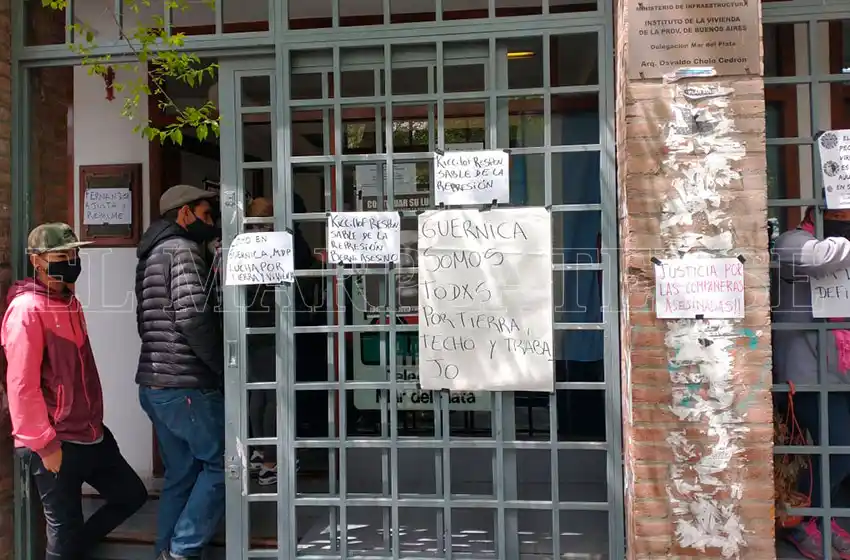 MINISTERIO DE INFRAESTRUCTURA
INSTITUTO DE LA VIVIENDA
DE LA PROV. DE BUENOS AIRES
Delegación Mar del Plata
Arq. Osvaldo Cholo Cedrón
FERNANDO
AJUSTA Y
REPRIME
EN
GUERNICA, MDP
LUCHA POR
TIERRA Y VIVIEN
KICILLOF RESPON
SABLE DE LA
REPRESIÓN
BERNI ASESINO
KICILLOF RESPON
SABLE DE LA
REPRESIÓN
GUERNICA
SOMOS
TODXS
POR TIERRA,
TECHO Y TRABA
JO
JUSTICIA POR
LAS COMPAÑERAS
ASESINADAS!!
DEFI
SU
Mar del Plata
EL MARPLATENSE